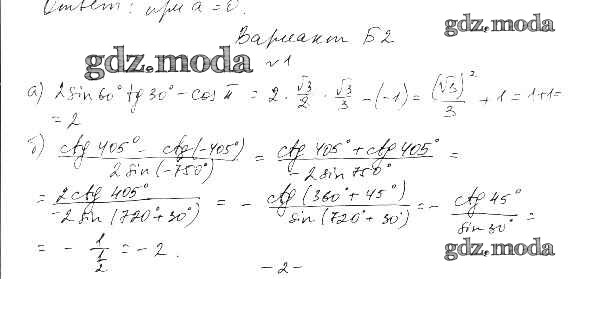 Ответ: при a = 0.
gdz.moda
Вариант Б2
gdz.moda
№1
а) 2sin60° tg30° - cos π = 2 · √3/2 · √3/3 - (-1) = (√3)²/3 + 1 = 1+1=
= 2
б) (ctg 405° - ctg(-405°))/(2 sin(-750°)) = (ctg 405° + ctg 405°)/(-2 sin 750°) =
= (2ctg 405°)/(-2 sin(720°+30°)) = - (ctg(360°+45°))/(sin(720°+30°)) = - (ctg 45°)/(sin 30°) =
= - 1/(1/2) = -2.
gdz.moda
-2-